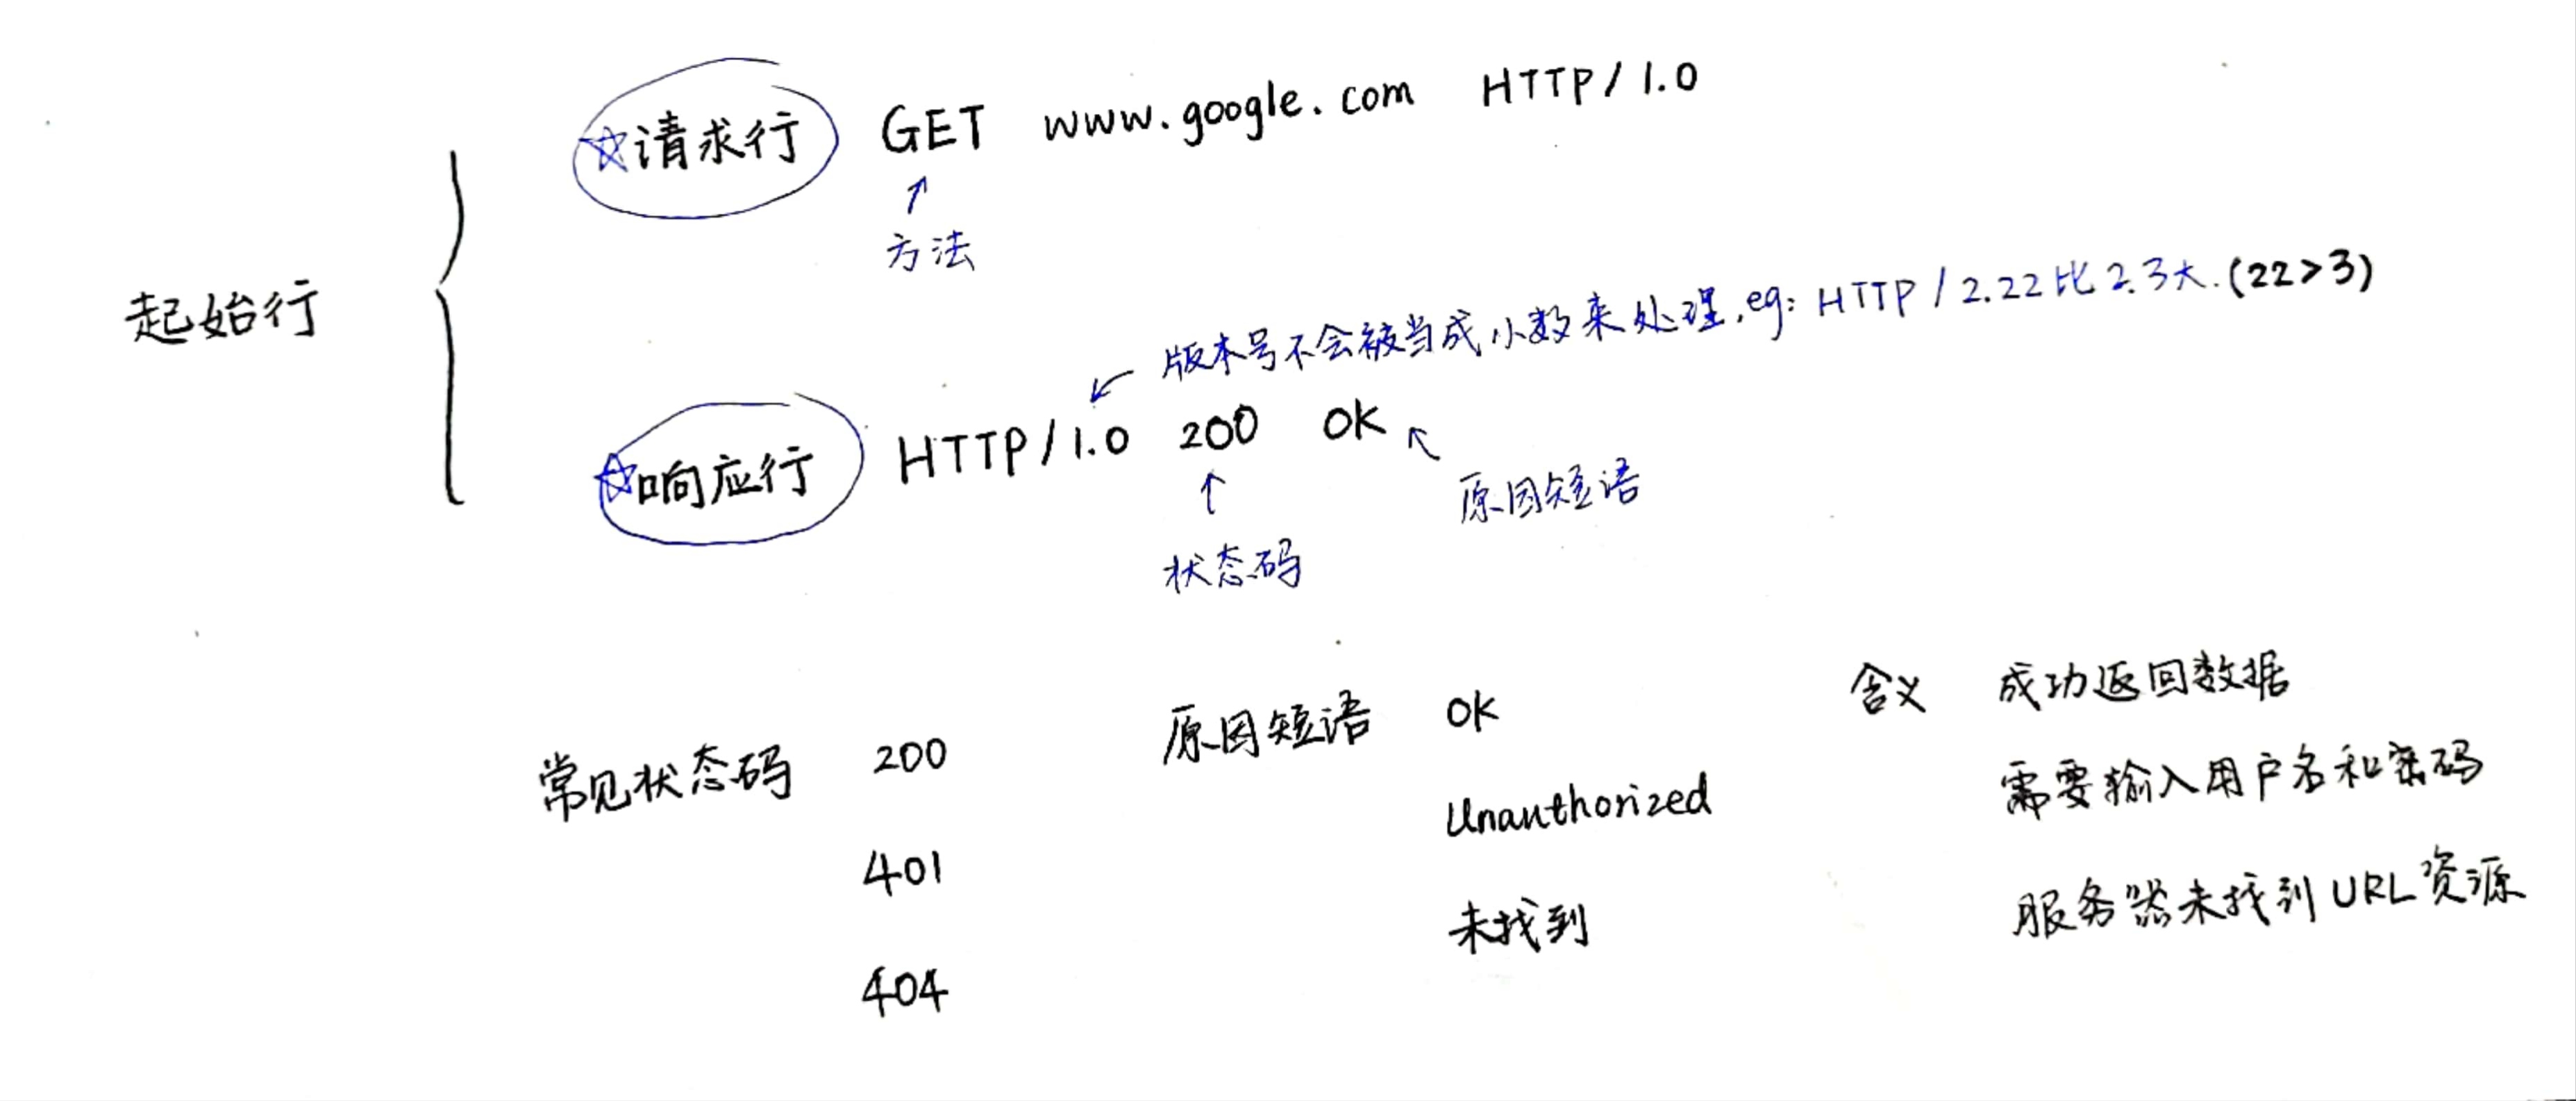 ☆请求行 GET www.google.com HTTP/1.0
方法
起始行
版本号不会被当成小数来处理,eg: HTTP/2.22比2.3大.(22>3)
☆响应行 HTTP/1.0 200 OK
原因短语
状态码
常见状态码 200 原因短语 OK 含义 成功返回数据
401 Unauthorized 需要输入用户名和密码
404 未找到 服务器未找到URL资源